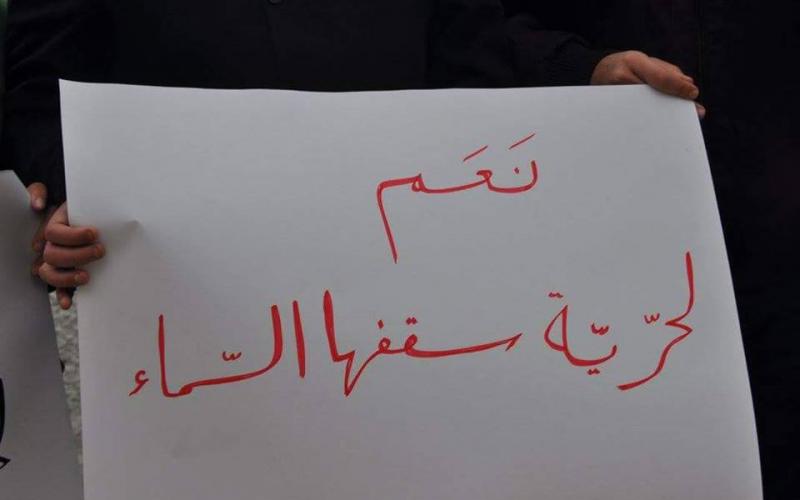 نَعَم
لحرّيّة سقفها السّماء